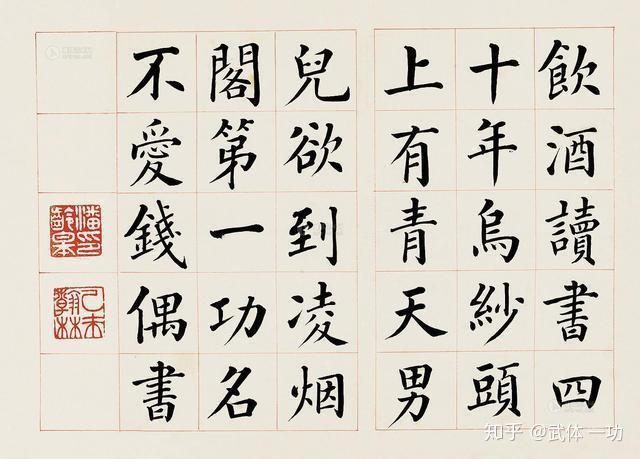 飲酒讀書四
十年烏紗頭
上有青天男
兒欲到凌烟
閣第一功名
不愛錢偶書
潘齡皋印
己未翰林
知乎 @武体一功